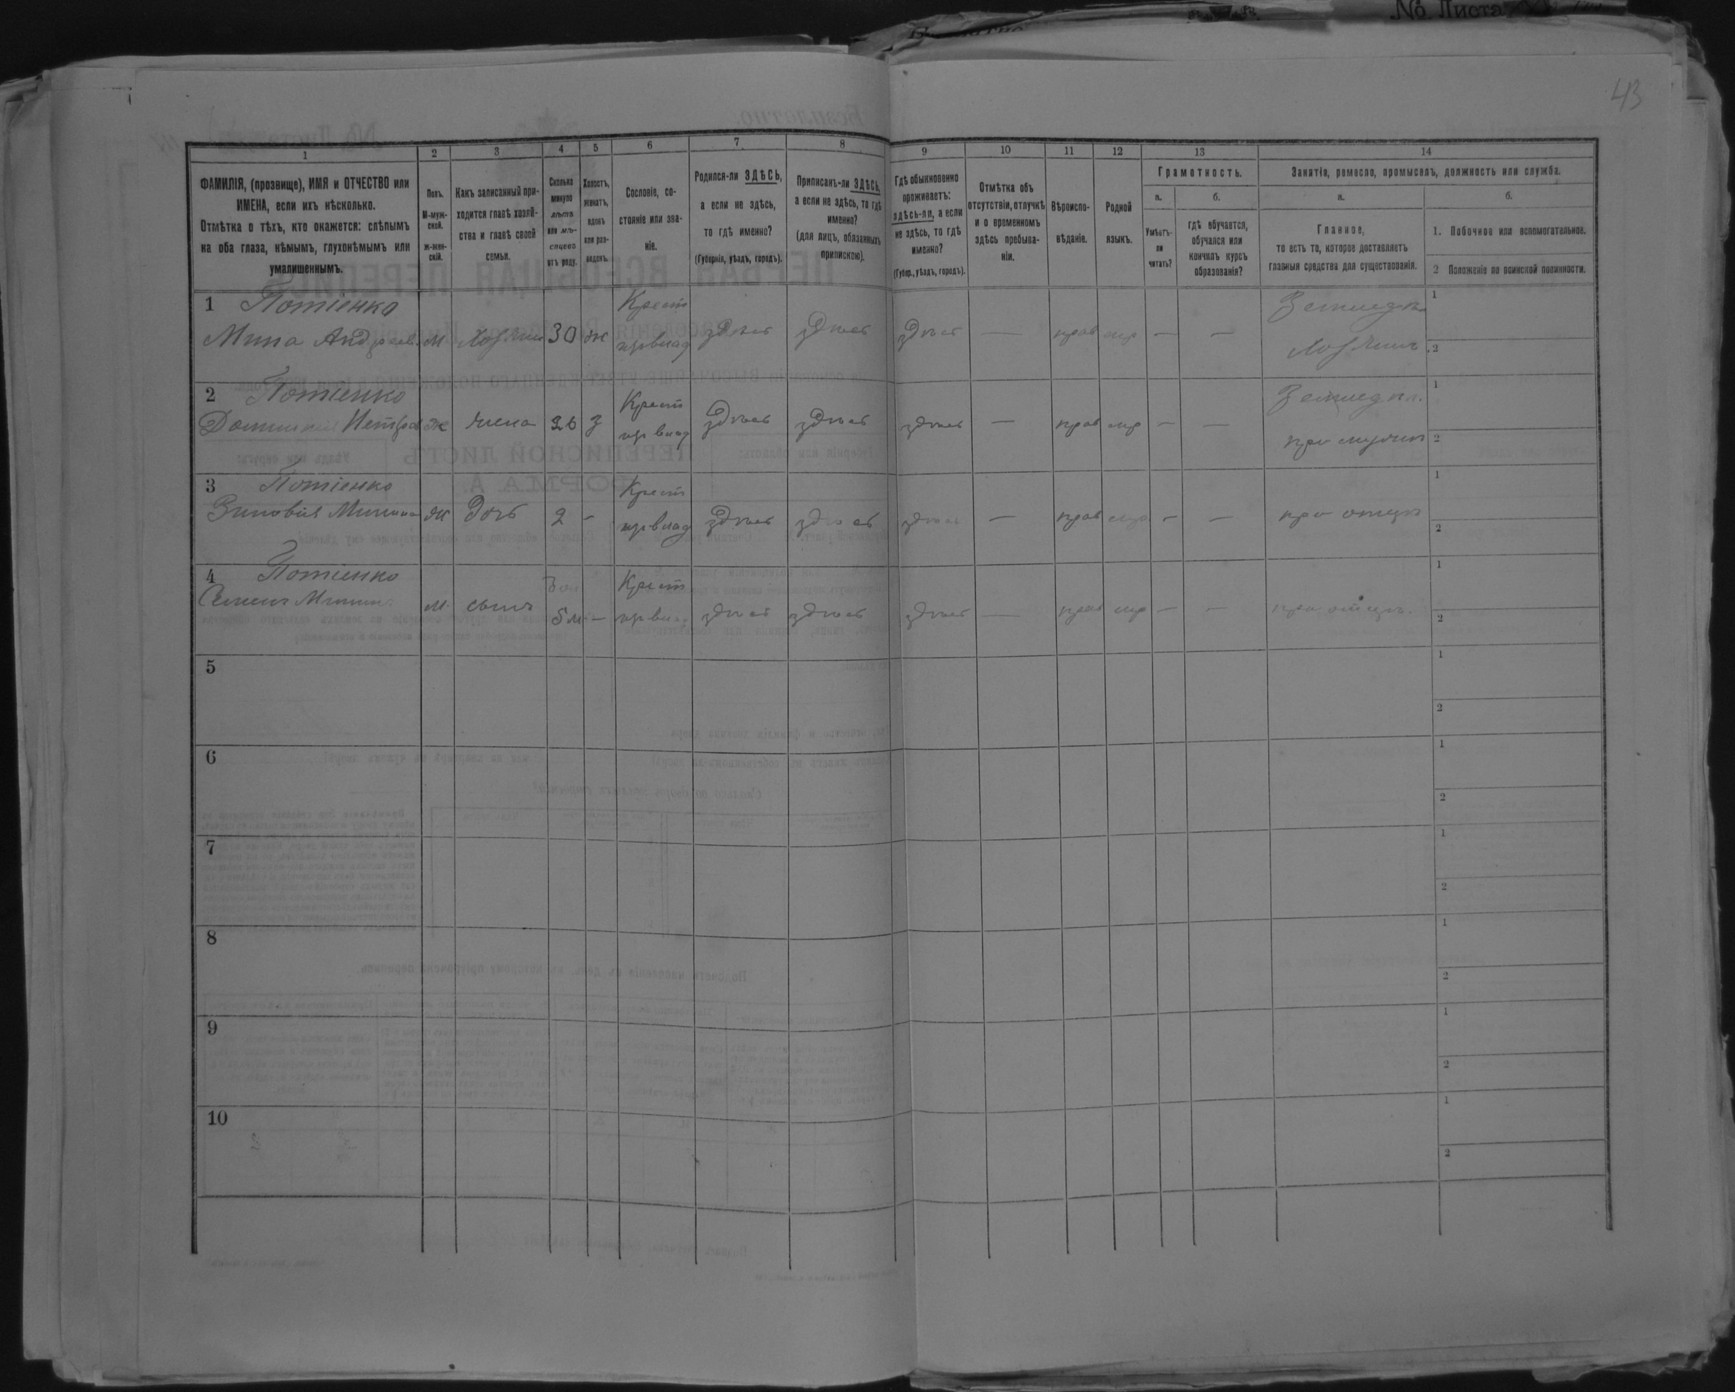 No. Листа
43
1 2 3 4 5 6 7 8 9 10 11 12 13 14
ФАМИЛІЯ, (прозвище), ИМЯ и ОТЧЕСТВО или
ИМЕНА, если ихъ нѣсколько.
Отмѣтка о тѣхъ, кто окажется: слѣпымъ
на оба глаза, нѣмымъ, глухонѣмымъ или
умалишеннымъ.
Полъ.
М-муж-
ской.
ж-жен-
скій.
Какъ записанный при-
ходится главѣ хозяй-
ства и главѣ своей
семьи.
Сколько
минуло
лѣтъ
или мѣ-
сяцевъ
отъ роду.
Холостъ,
женатъ,
вдовъ
или раз-
веденъ.
Сословіе, со-
стояніе или зва-
ніе.
Родился-ли ЗДѢСЬ,
а если не здѣсь,
то гдѣ именно?
(Губернія, уѣздъ, городъ).
Приписанъ-ли ЗДѢСЬ,
а если не здѣсь, то гдѣ
именно?
(для лицъ, обязанныхъ
припискою).
Гдѣ обыкновенно
проживаетъ:
здѣсь-ли, а если
не здѣсь, то гдѣ
именно?
(Губер., уѣздъ, городъ).
Отмѣтка объ
отсутствіи, отлучкѣ
и о временномъ
здѣсь пребыва-
ніи.
Вѣроиспо-
вѣданіе.
Родной
языкъ.
Грамотность.
а.
Умѣетъ-
ли
читать?
б.
гдѣ обучается,
обучался или
кончилъ курсъ
образованія?
Занятіе, ремесло, промыселъ, должность или служба.
а.
Главное,
то есть то, которое доставляетъ
главныя средства для существованія.
б.
1. Побочное или вспомогательное.
2 Положеніе по воинской повинности.
1 Потіенко Крест Земледѣл 1
Мина Андреев. м Хозяинъ 30 ж здѣсь здѣсь здѣсь — прав мр — — Хозяинъ 2
2 Потіенко Крест Земледѣл. 1
Петров ж жена 26 з здѣсь здѣсь здѣсь — прав мр — — при мужѣ 2
3 Потіенко Крест 1
Зиновія Минина ж Дочь 2 — здѣсь здѣсь здѣсь — прав мр — — при отцѣ 2
4 Потіенко Крест 1
Семенъ Минин м сынъ 5 м — здѣсь здѣсь здѣсь — прав мр — — при отцѣ 2
5 1
2
6 1
2
7 1
2
8 1
2
9 1
2
10 1
2